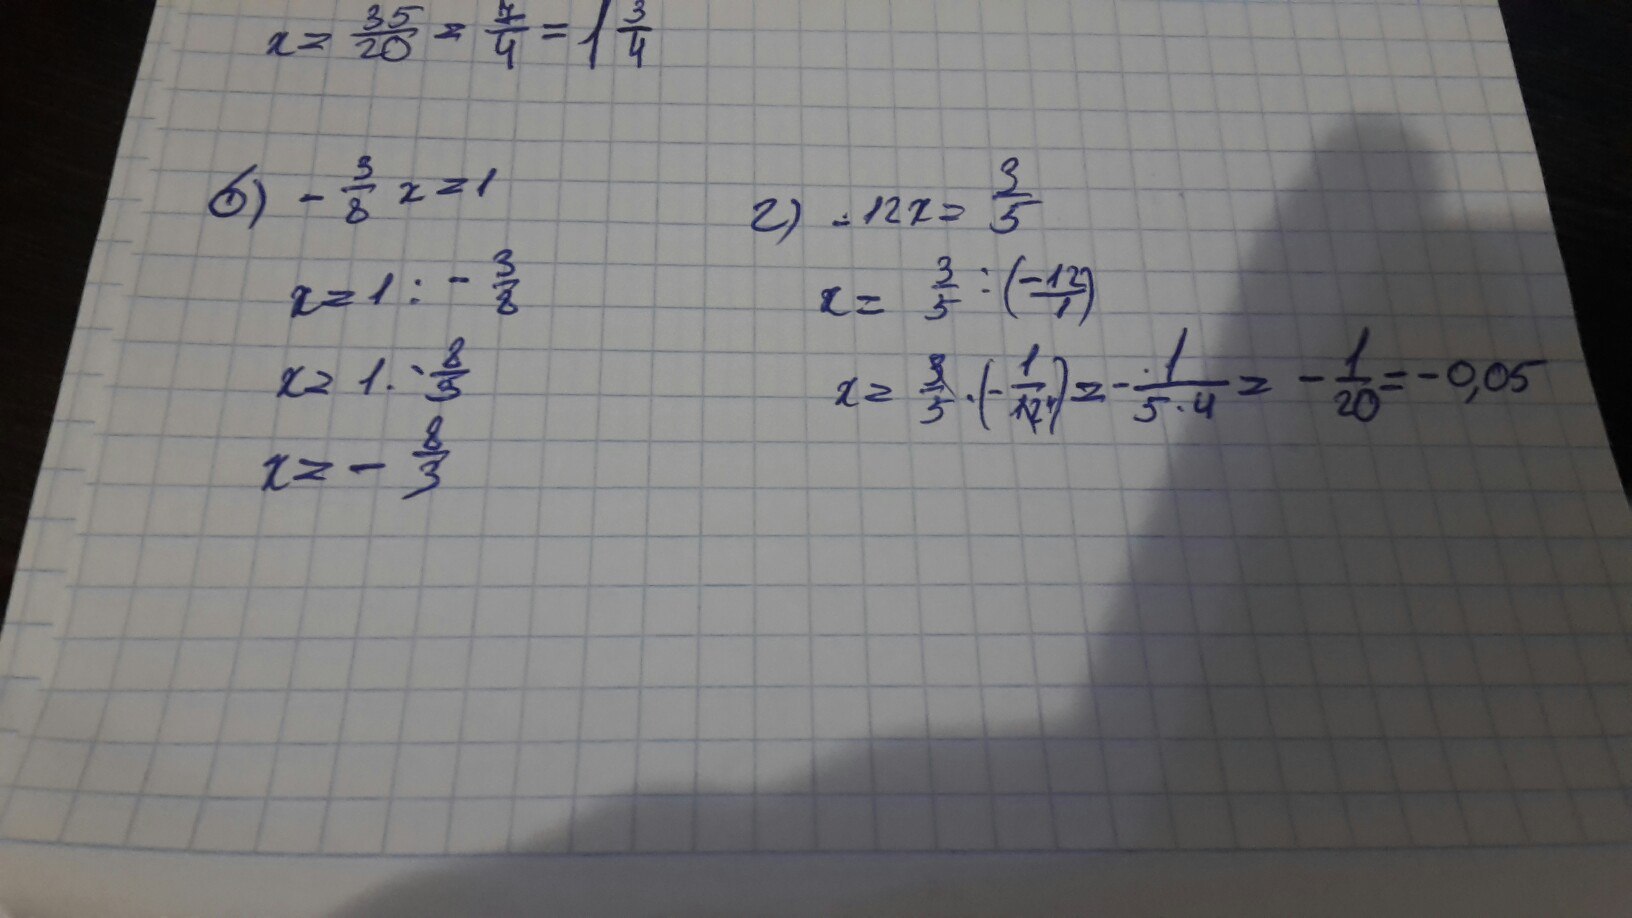 x = 35/20 = 7/4 = 1 3/4
б) - 3/8 x = 1
x = 1 : - 3/8
x = 1 · - 8/3
x = - 8/3
г) - 12x = 3/5
x = 3/5 : (-12/1)
x = 3/5 · (- 1/12) = - 1/(5·4) = - 1/20 = - 0,05